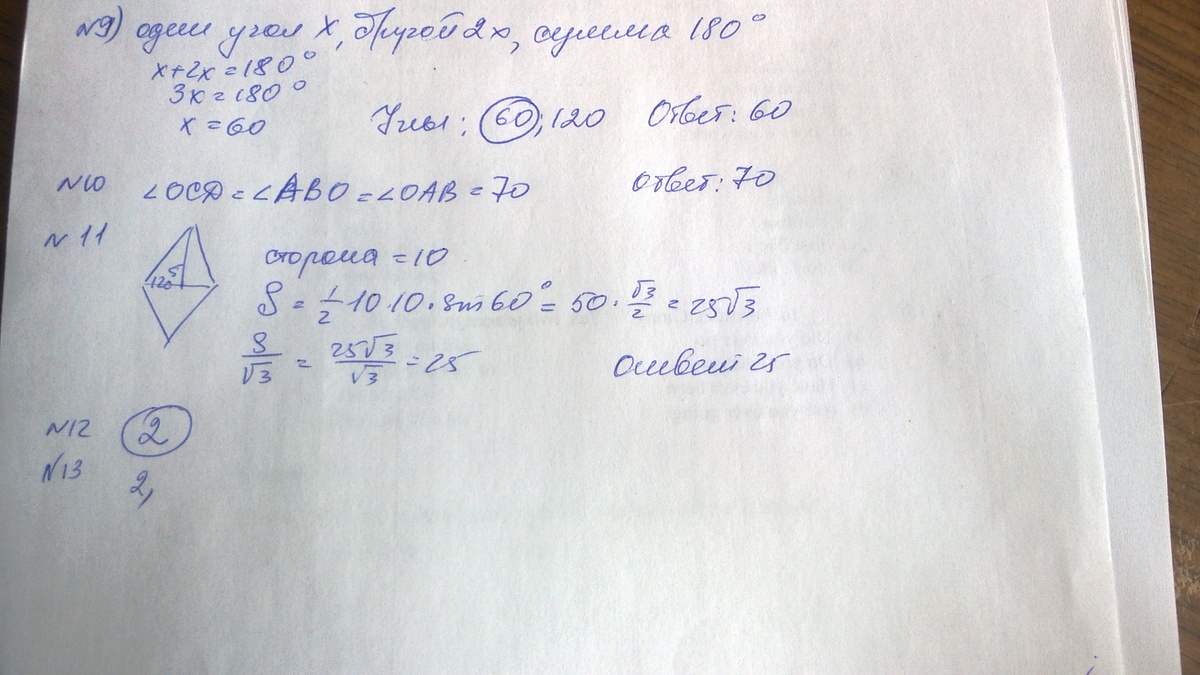 №9) один угол x, другой 2x, сумма 180°
x+2x=180°
3x=180°
x=60
Углы: 60; 120 Ответ: 60
№10 ∠OCD=∠ABO=∠OAB=70 Ответ: 70
№11
120 5
сторона=10
S = 1/2 10 10·sin60° = 50·√3/2 = 25√3
S/√3 = 25√3/√3 = 25 Ответ 25
№12 2
№13 2,